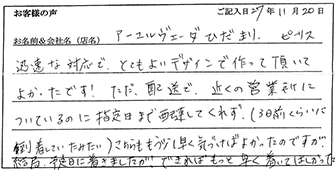 お客様の声 ご記入日27年11月20日
お名前&会社名(店名) アーユルヴェーダひだまり. ピース
迅速な対応で、とてもよいデザインで作って頂いて
よかったです! ただ、配送で、近くの営業所に
ついているのに指定日まで配達してくれず、(3日前くらいに
到着していたみたい)こちらももう少し早く気づけばよかったのですが、
結局、予定日に着きましたが できればもっと早く着いてほしかった